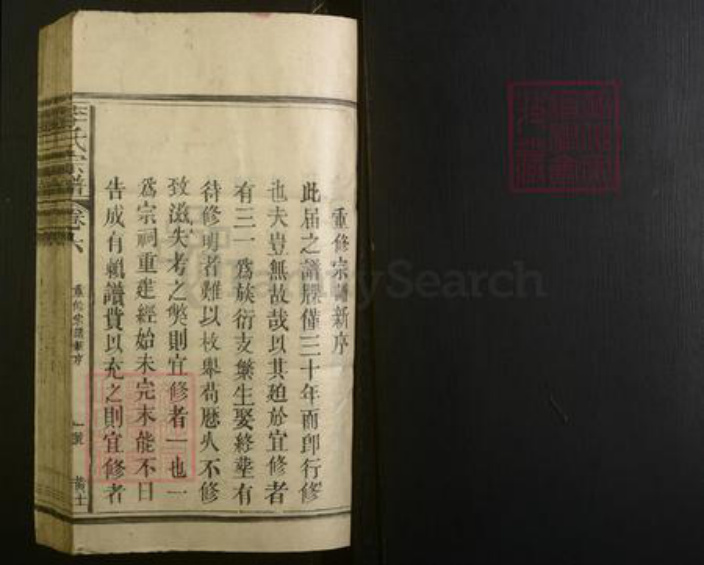 重修宗譜新序
此届之譜牒僅三十年而即行修
也夫豈無故哉以其廹於宜修者
有三一為族衍支繁生娶終塟有
待修明者難以枚舉苟歴久不修
致滋失考之獘則宜修者一也一
為宗祠重建經始未完未能不日
告成有賴譜費以充之則宜修者
李氏宗譜
卷六
重修宗譜新序
一號
FamilySearch